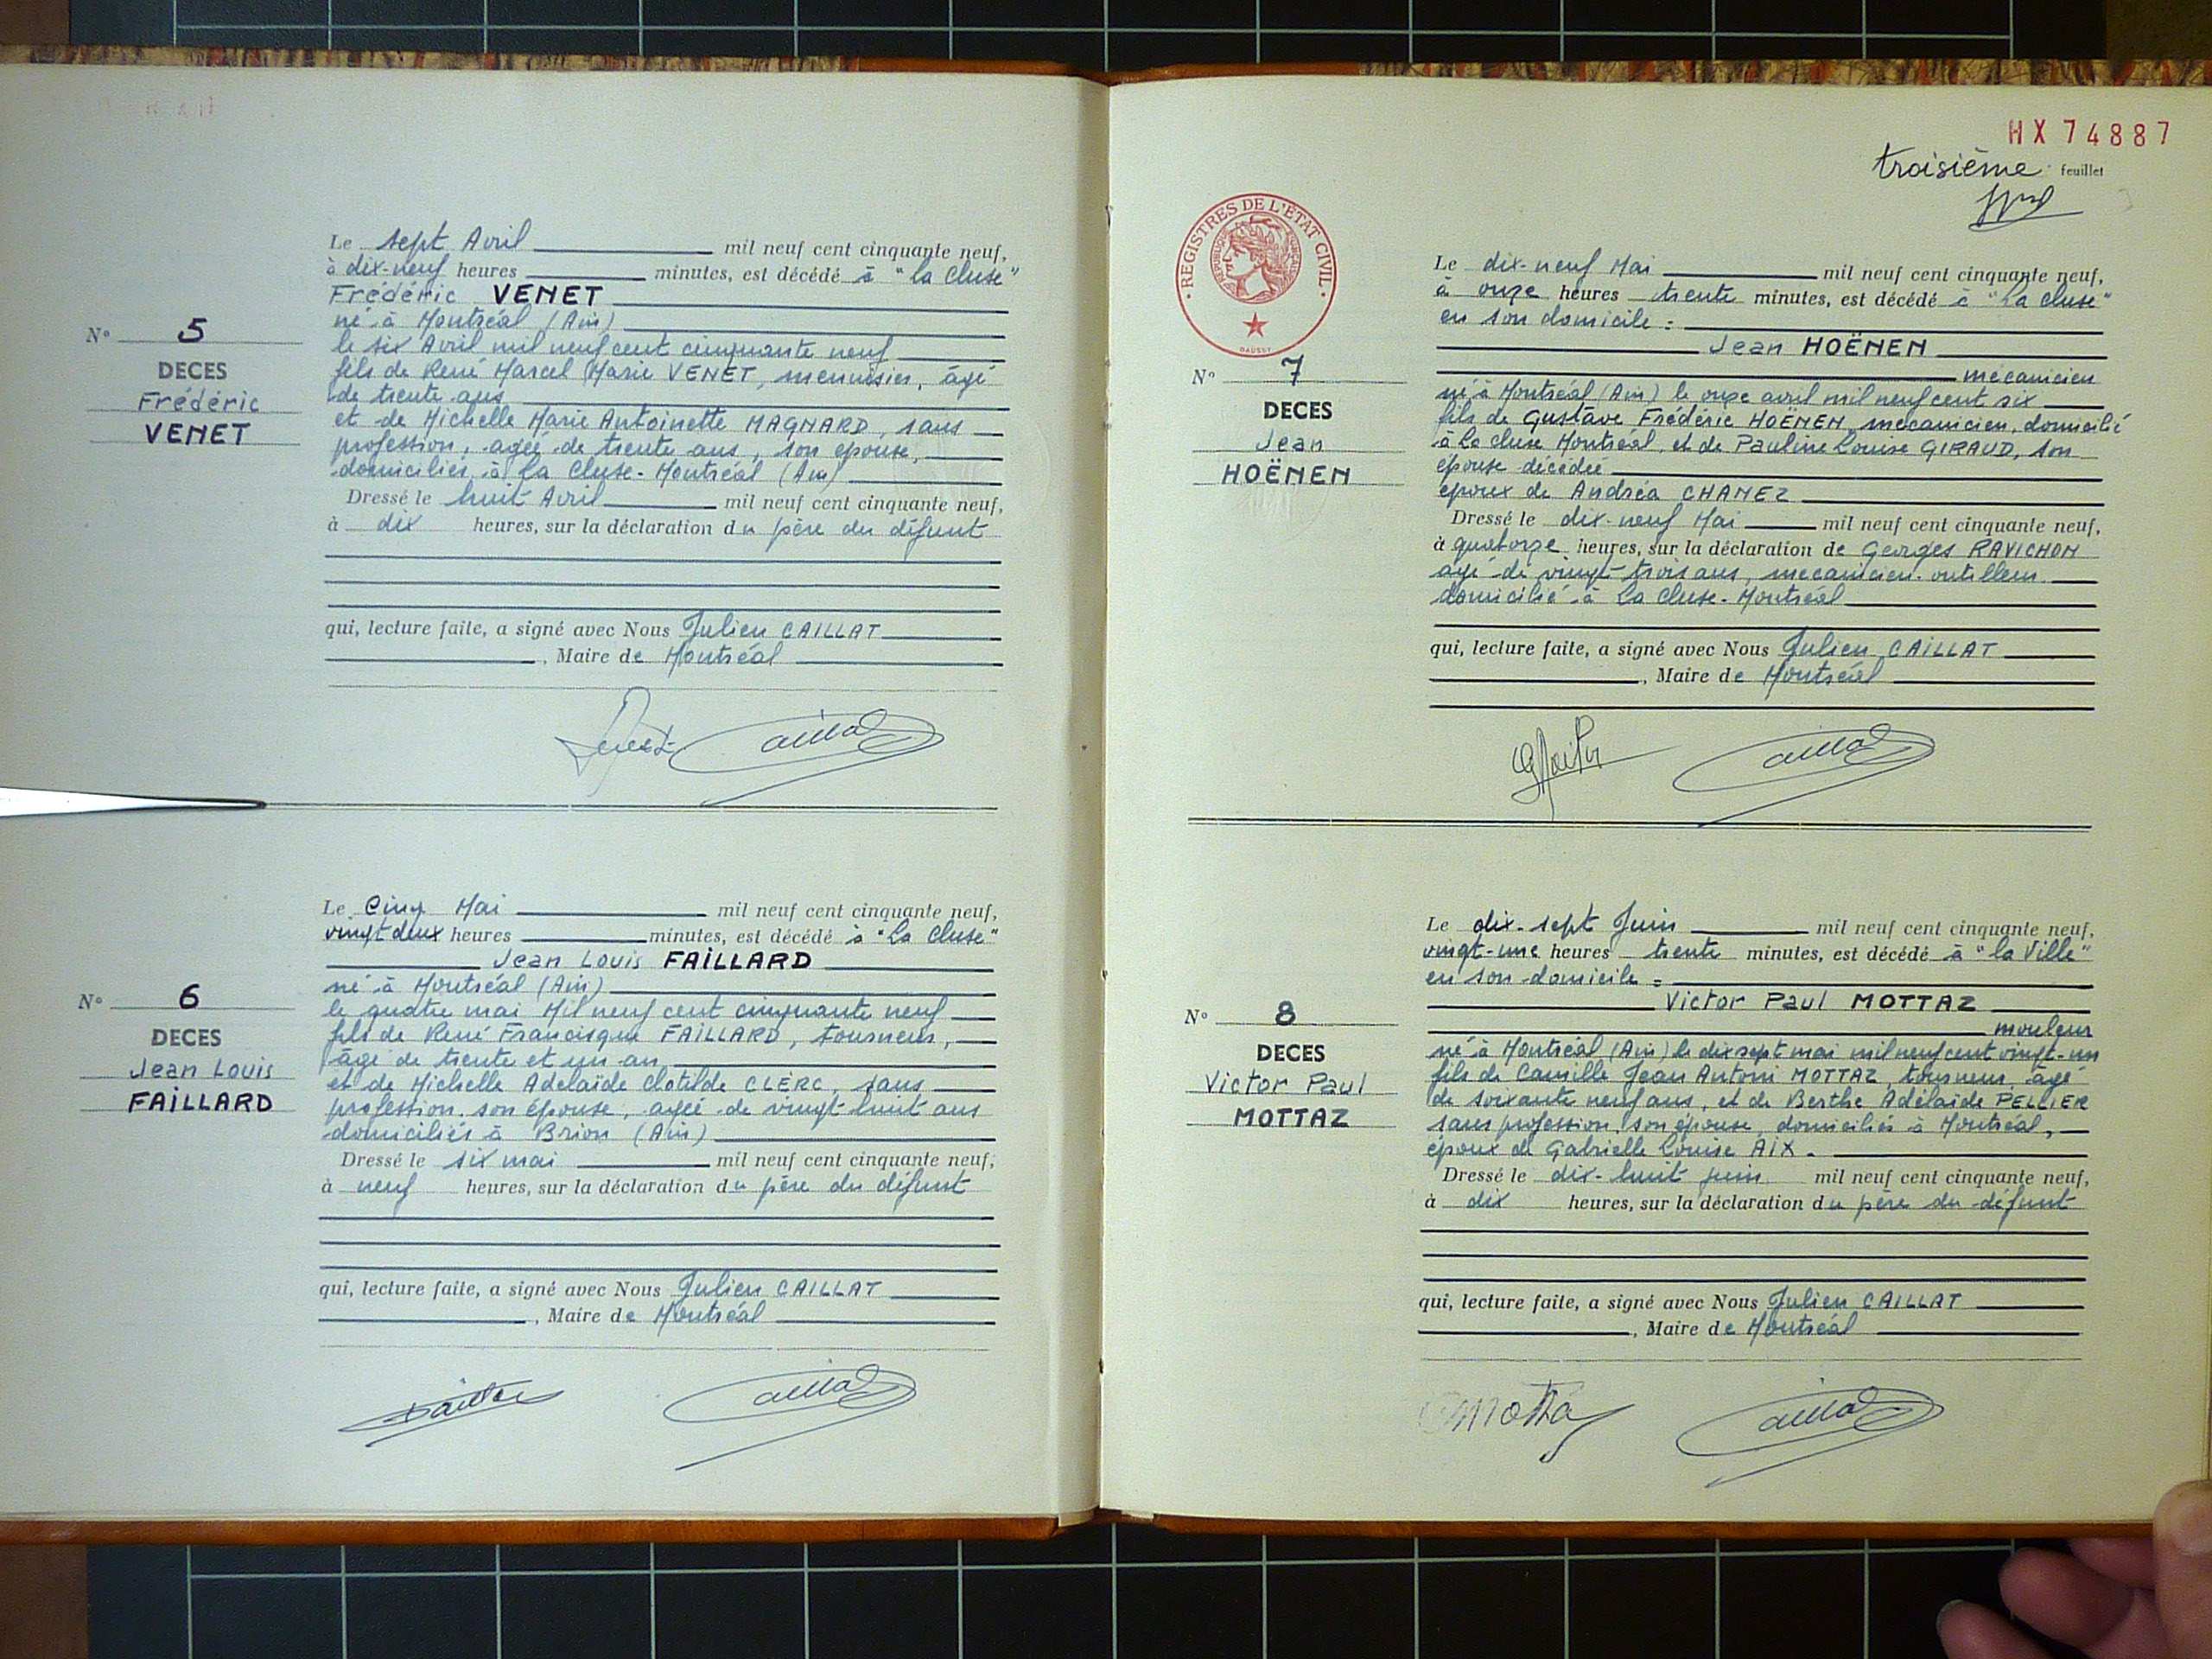 Le sept Avril mil neuf cent cinquante neuf,
à dix-neuf heures minutes, est décédé à "La Cluse"
Frédéric VENET
né à Montréal (Ain)
le six Avril mil neuf cent cinquante neuf
fils de René Marcel Marie VENET, menuisier, âgé
de trente ans
et de Michelle Marie Antoinette MAGNARD, sans
profession, agée de trente ans, son épouse,
domiciliés à La Cluse-Montréal (Ain)
Dressé le huit Avril mil neuf cent cinquante neuf,
à dix heures, sur la déclaration du père du défunt
qui, lecture faite, a signé avec Nous Julien CAILLAT
, Maire de Montréal
N° 5
DECES
Frédéric
VENET
Le Cinq Mai mil neuf cent cinquante neuf,
vingt deux heures minutes, est décédé à "La Cluse"
Jean Louis FAILLARD
né à Montréal (Ain)
le quatre mai Mil neuf cent cinquante neuf
fils de René Francisque FAILLARD, tourneur,
âgé de trente et un an
et de Michelle Adelaïde Clotilde CLERC, sans
profession, son épouse, agée de vingt huit ans
domiciliés à Brion (Ain)
Dressé le six mai mil neuf cent cinquante neuf,
à neuf heures, sur la déclaration du père du défunt
qui, lecture faite, a signé avec Nous Julien CAILLAT
, Maire de Montréal
N° 6
DECES
Jean Louis
FAILLARD
HX 74887
troisième feuillet
REGISTRES DE L'ÉTAT CIVIL
RÉPUBLIQUE FRANÇAISE
DAUSSY
Le dix-neuf Mai mil neuf cent cinquante neuf,
à onze heures trente minutes, est décédé à "La Cluse"
en son domicile :
Jean HOËNEN
mécanicien
né à Montréal (Ain) le onze avril mil neuf cent six
fils de Gustave Frédéric HOËNEN, mécanicien, domicilié
à La Cluse Montréal, et de Pauline Louise GIRAUD, son
épouse décédée
époux de Andréa CHANEZ
Dressé le dix-neuf Mai mil neuf cent cinquante neuf,
à quatorze heures, sur la déclaration de Georges RAVICHON
agé de vingt trois ans, mécanicien-outilleur
domicilié à La Cluse-Montréal
qui, lecture faite, a signé avec Nous Julien CAILLAT
, Maire de Montréal
N° 7
DECES
Jean
HOËNEN
Le dix-sept Juin mil neuf cent cinquante neuf,
vingt-une heures trente minutes, est décédé à "la Ville"
en son domicile :
Victor Paul MOTTAZ
mouleur
né à Montréal (Ain) le dix sept mai mil neuf cent vingt-un
fils de Camille Jean Antoni MOTTAZ, tourneur, agé
de soixante neuf ans, et de Berthe Adélaïde PELLIER
sans profession, son épouse, domiciliés à Montréal,
époux de Gabrielle Louise AIX.
Dressé le dix-huit juin mil neuf cent cinquante neuf,
à dix heures, sur la déclaration du père du défunt
qui, lecture faite, a signé avec Nous Julien CAILLAT
, Maire de Montréal
N° 8
DECES
Victor Paul
MOTTAZ